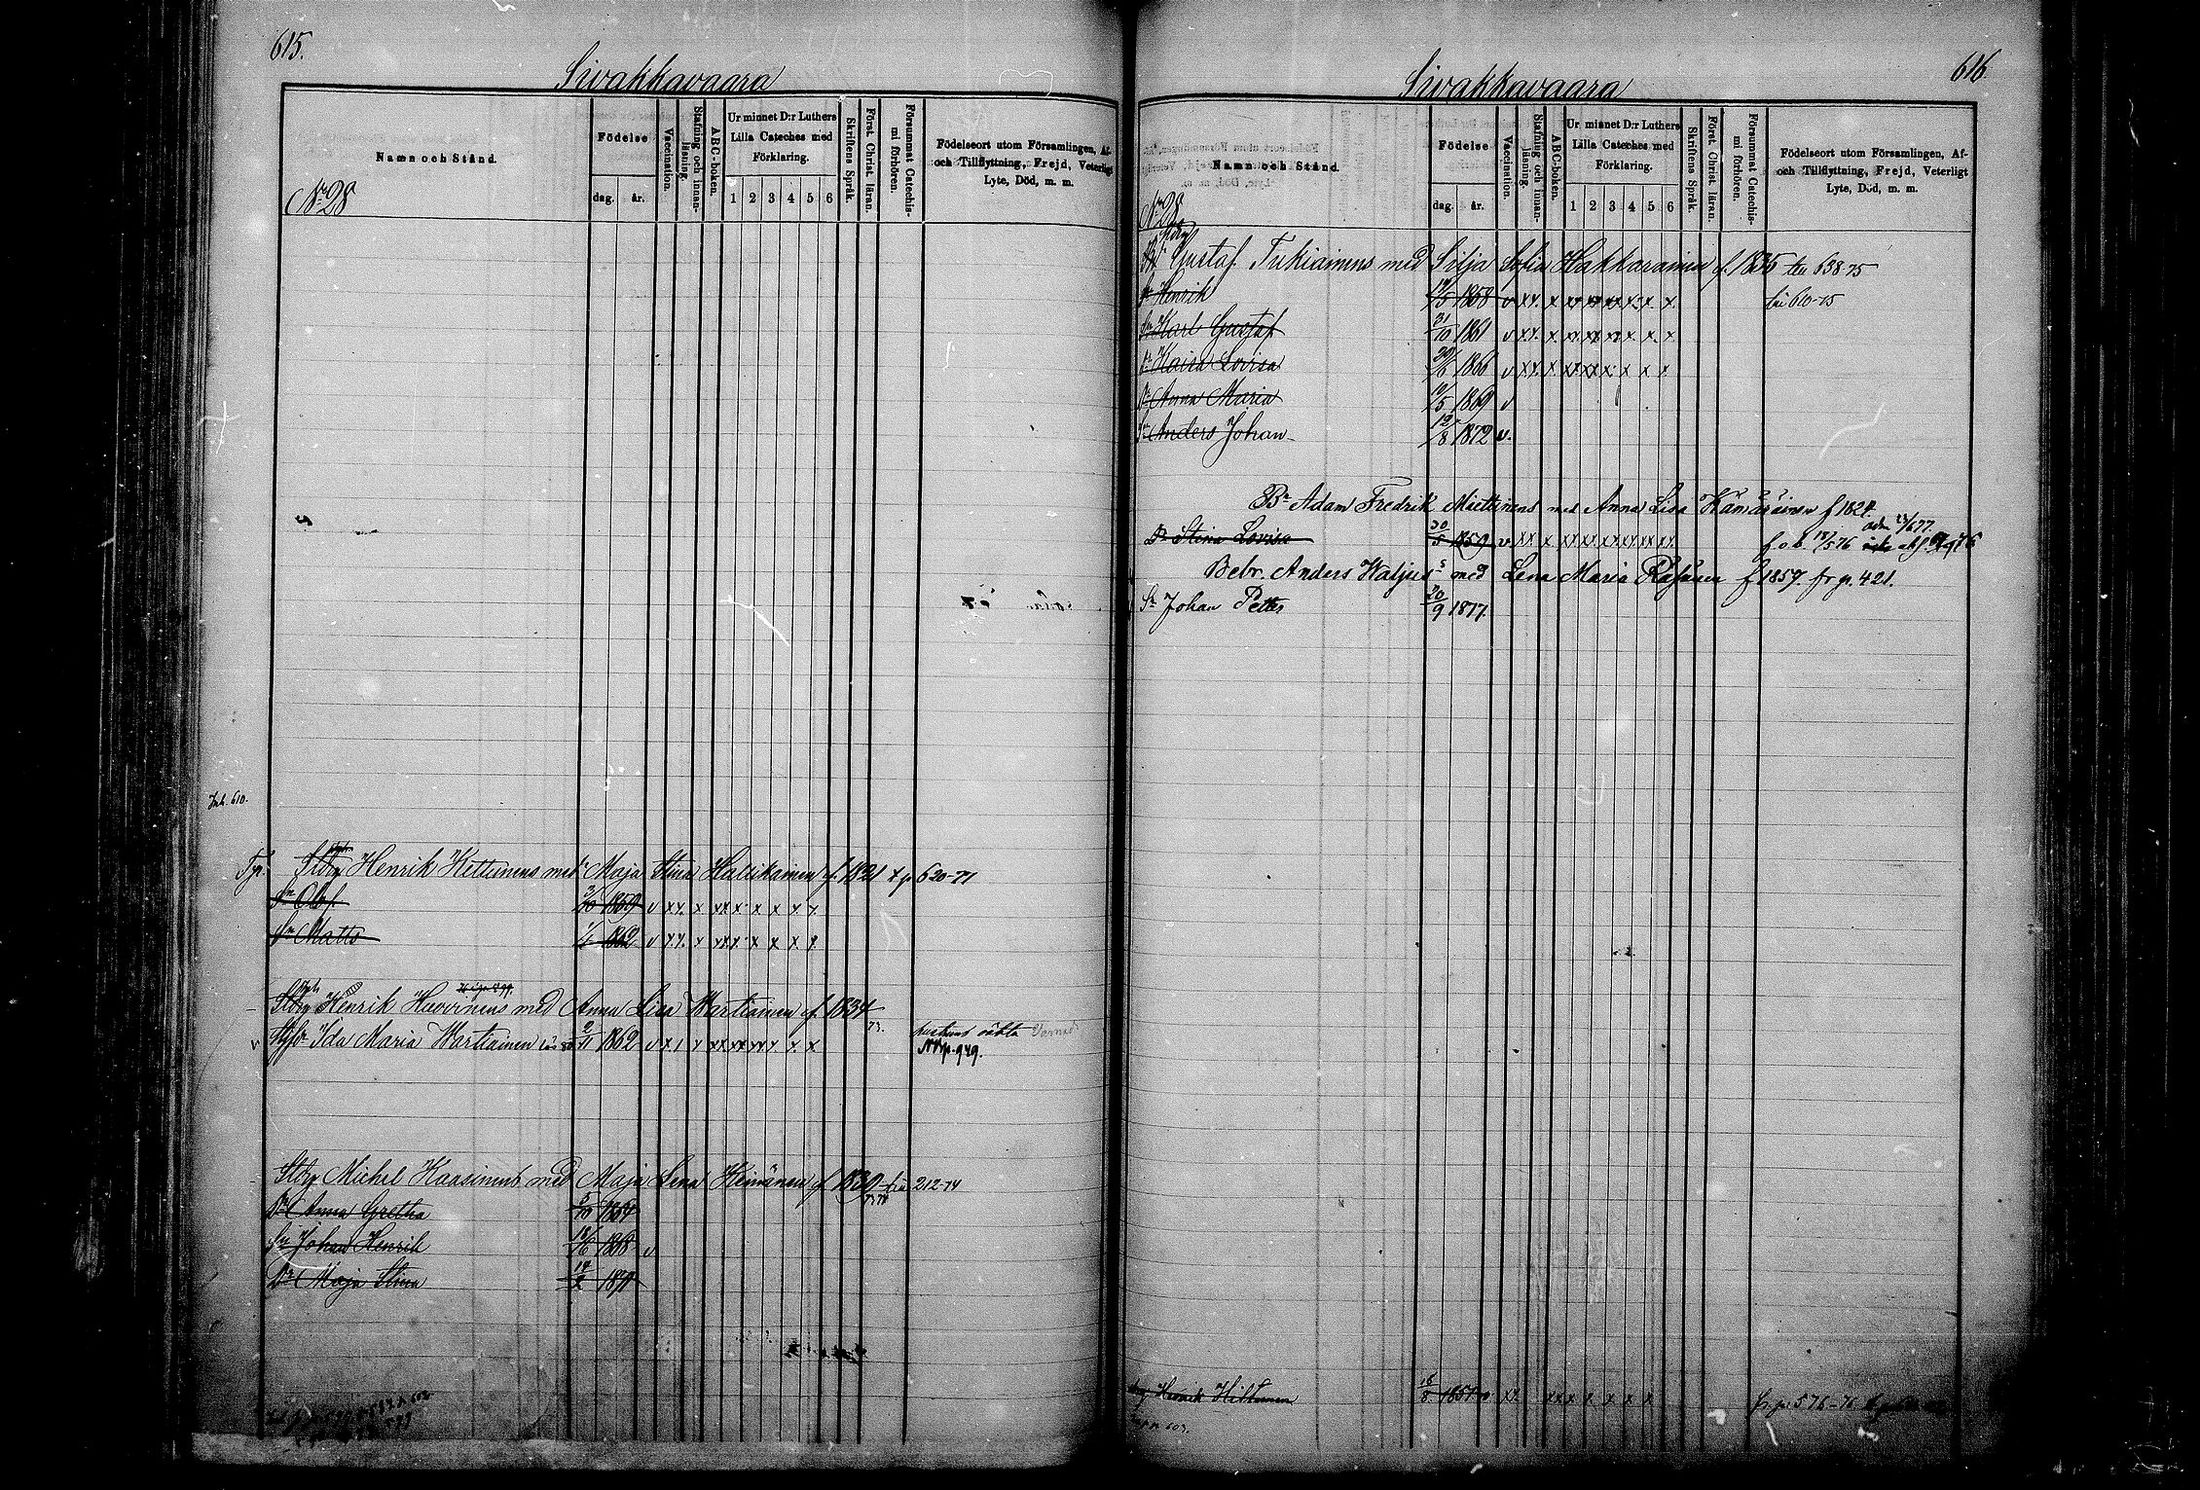 615.
Sivakkavaara
Namn och Stånd.
Födelse
dag. år.
Vaccination.
Stafning och innanläsning.
ABC-boken.
Ur minnet D:r Luthers
Lilla Cateches med
Förklaring.
1 2 3 4 5 6
Skriftens Språk.
Först. Christ. läran.
Försummat Catechismi förhören.
Födelseort utom Församlingen, Af-
och Tillflyttning, Frejd, Veterligt
Lyte, Död, m. m.
No 28
Inh. 610.
Henrik Kettunens med Maja Stina Halikainen f. 1821 620-71
Sn Olof 1859 v
Sn Matts 1862 v
Henrik Huovinens med Anna Lisa Wartiainen f. 1834
Ida Maria Wartiainen 2/11 1862 v
p. 949.
Stbg Michel Kaasinens med Maja Lena Keinänen f. 1830 212-74
Dr Anna Gretha 5/10 1864
Sn Johan Henrik 18/6 1868 v
Dr Maja Stina 14/2 1871
616
Sivakkavaara
Namn och Stånd.
Födelse
dag. år.
Vaccination.
Stafning och innanläsning.
ABC-boken.
Ur minnet D:r Luthers
Lilla Cateches med
Förklaring.
1 2 3 4 5 6
Skriftens Språk.
Först. Christ. läran.
Försummat Catechismi förhören.
Födelseort utom Församlingen, Af-
och Tillflyttning, Frejd, Veterligt
Lyte, Död, m. m.
No 28
Gustaf Tukiainens med Silja Sofia Hakkarainen f. 1835 638-75
Sn Henrik 1858 v 610-75
Sn Karl Gustaf 31/10 1861 v
Dr Kaisa Lovisa 1866 v
Dr Anna Maria 1869 v
Sn Anders Johan 12/8 1872 v.
Br Adam Fredrik Miettinens med Anna Lisa Kämäräinen f 1824.
Dr Stina Lovisa 30/5 1859 v
Bebr. Anders Waljus med Lena Maria Räsänen f 1857 fr p. 421.
Sn Johan Petter 20/9 1877.
Henrik Hiltunen 18/8 1851 fr. p. 576-76